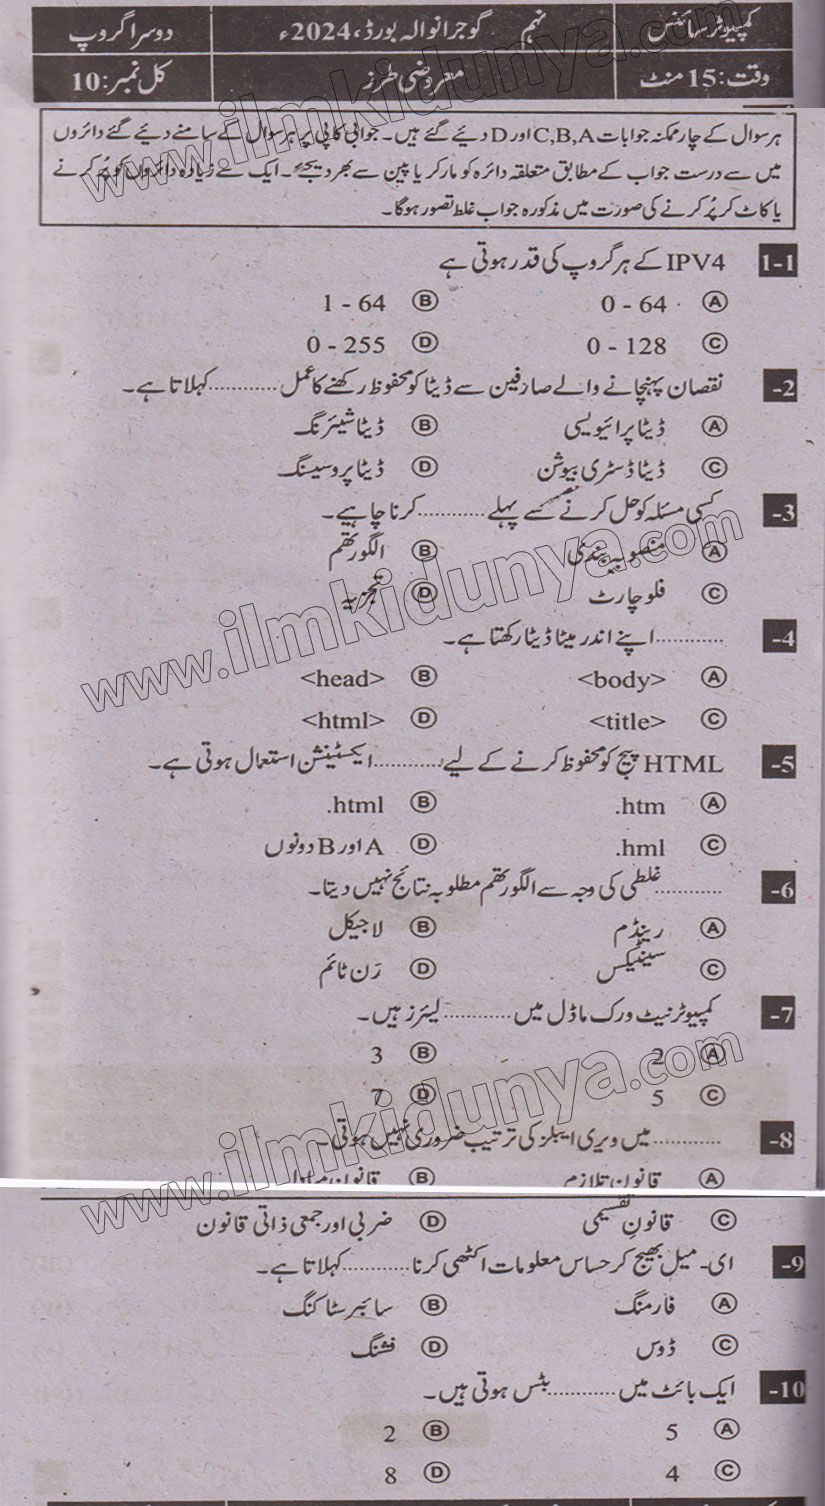 کمپیوٹر سائنس نہم گوجرانوالہ بورڈ، 2024ء دوسرا گروپ
وقت: 15 منٹ معروضی طرز کل نمبر: 10
ہر سوال کے چار ممکنہ جوابات C,B,A اور D دیئے گئے ہیں۔ جوابی کاپی پر ہر سوال کے سامنے دیئے گئے دائروں
میں سے درست جواب کے مطابق متعلقہ دائرہ کو مارکر یا پین سے بھر دیجئے۔ ایک سے زیادہ دائروں کو پُر کرنے
یا کاٹ کر پُر کرنے کی صورت میں مذکورہ جواب غلط تصور ہوگا۔
1-1 IPV4 کے ہر گروپ کی قدر ہوتی ہے
Ⓐ 0 - 64 Ⓑ 1 - 64
Ⓒ 0 - 128 Ⓓ 0 - 255
-2 نقصان پہنچانے والے صارفین سے ڈیٹا کو محفوظ رکھنے کا عمل ............ کہلاتا ہے۔
Ⓐ ڈیٹا پرائیویسی Ⓑ ڈیٹا شیئرنگ
Ⓒ ڈیٹا ڈسٹری بیوشن Ⓓ ڈیٹا پروسیسنگ
-3 کسی مسئلہ کو حل کرنے سے پہلے ............ کرنا چاہیے۔
Ⓐ منصوبہ بندی Ⓑ الگورتھم
Ⓒ فلو چارٹ Ⓓ تجزیہ
-4 ............ اپنے اندر میٹا ڈیٹا رکھتا ہے۔
Ⓐ <body> Ⓑ <head>
Ⓒ <title> Ⓓ <html>
-5 HTML پیج کو محفوظ کرنے کے لیے ............ ایکسٹینشن استعمال ہوتی ہے۔
Ⓐ .htm Ⓑ .html
Ⓒ .hml Ⓓ A اور B دونوں
-6 ............ غلطی کی وجہ سے الگورتھم مطلوبہ نتائج نہیں دیتا۔
Ⓐ رینڈم Ⓑ لاجیکل
Ⓒ سینٹیکس Ⓓ رَن ٹائم
-7 کمپیوٹر نیٹ ورک ماڈل میں ............ لیئرز ہیں۔
Ⓐ 2 Ⓑ 3
Ⓒ 5 Ⓓ 7
-8 ............ میں ویری ایبلز کی ترتیب ضروری نہیں ہوتی۔
Ⓐ قانون تلازم Ⓑ قانون
Ⓒ قانونِ تقسیمی Ⓓ ضربی اور جمعی ذاتی قانون
-9 ای۔ میل بھیج کر حساس معلومات اکٹھی کرنا ............ کہلاتا ہے۔
Ⓐ فارمنگ Ⓑ سائبر سٹاکنگ
Ⓒ ڈوس Ⓓ فشنگ
-10 ایک بائٹ میں ............ بٹس ہوتی ہیں۔
Ⓐ 5 Ⓑ 2
Ⓒ 4 Ⓓ 8
www.ilmkidunya.com
www.ilmkidunya.com
www.ilmkidunya.com